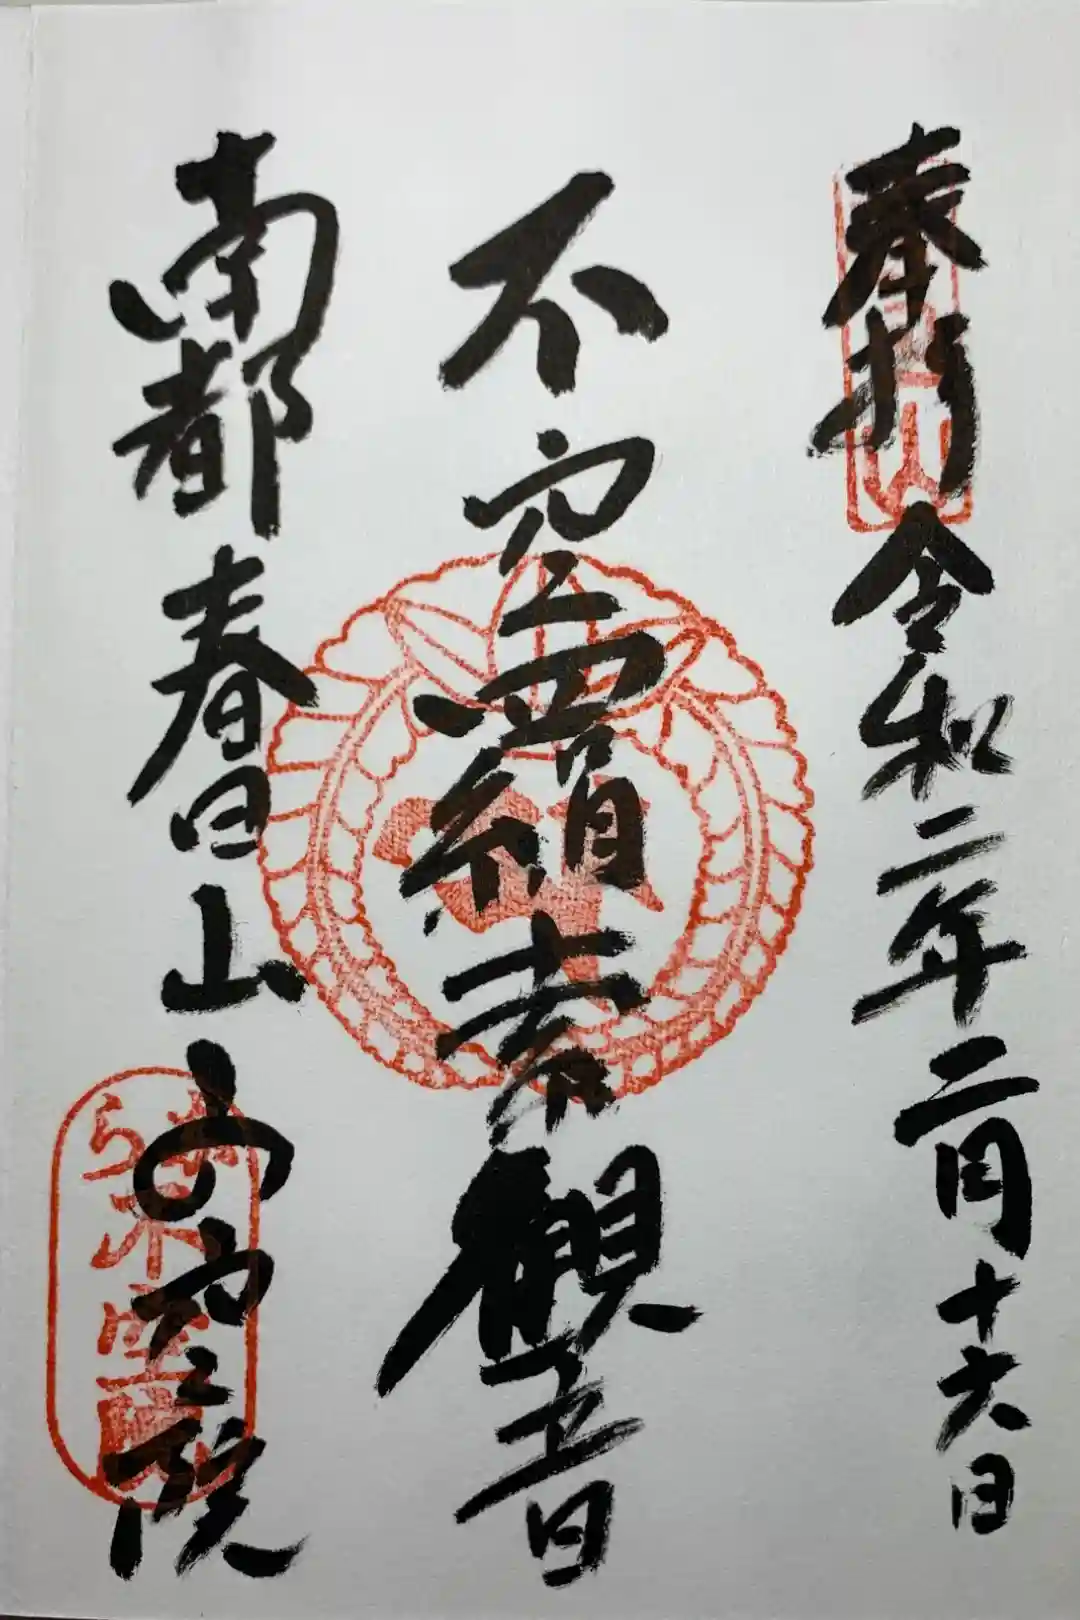 奉拝 令和二年二月十六日
不空羂索観音
南都春日山 不空院